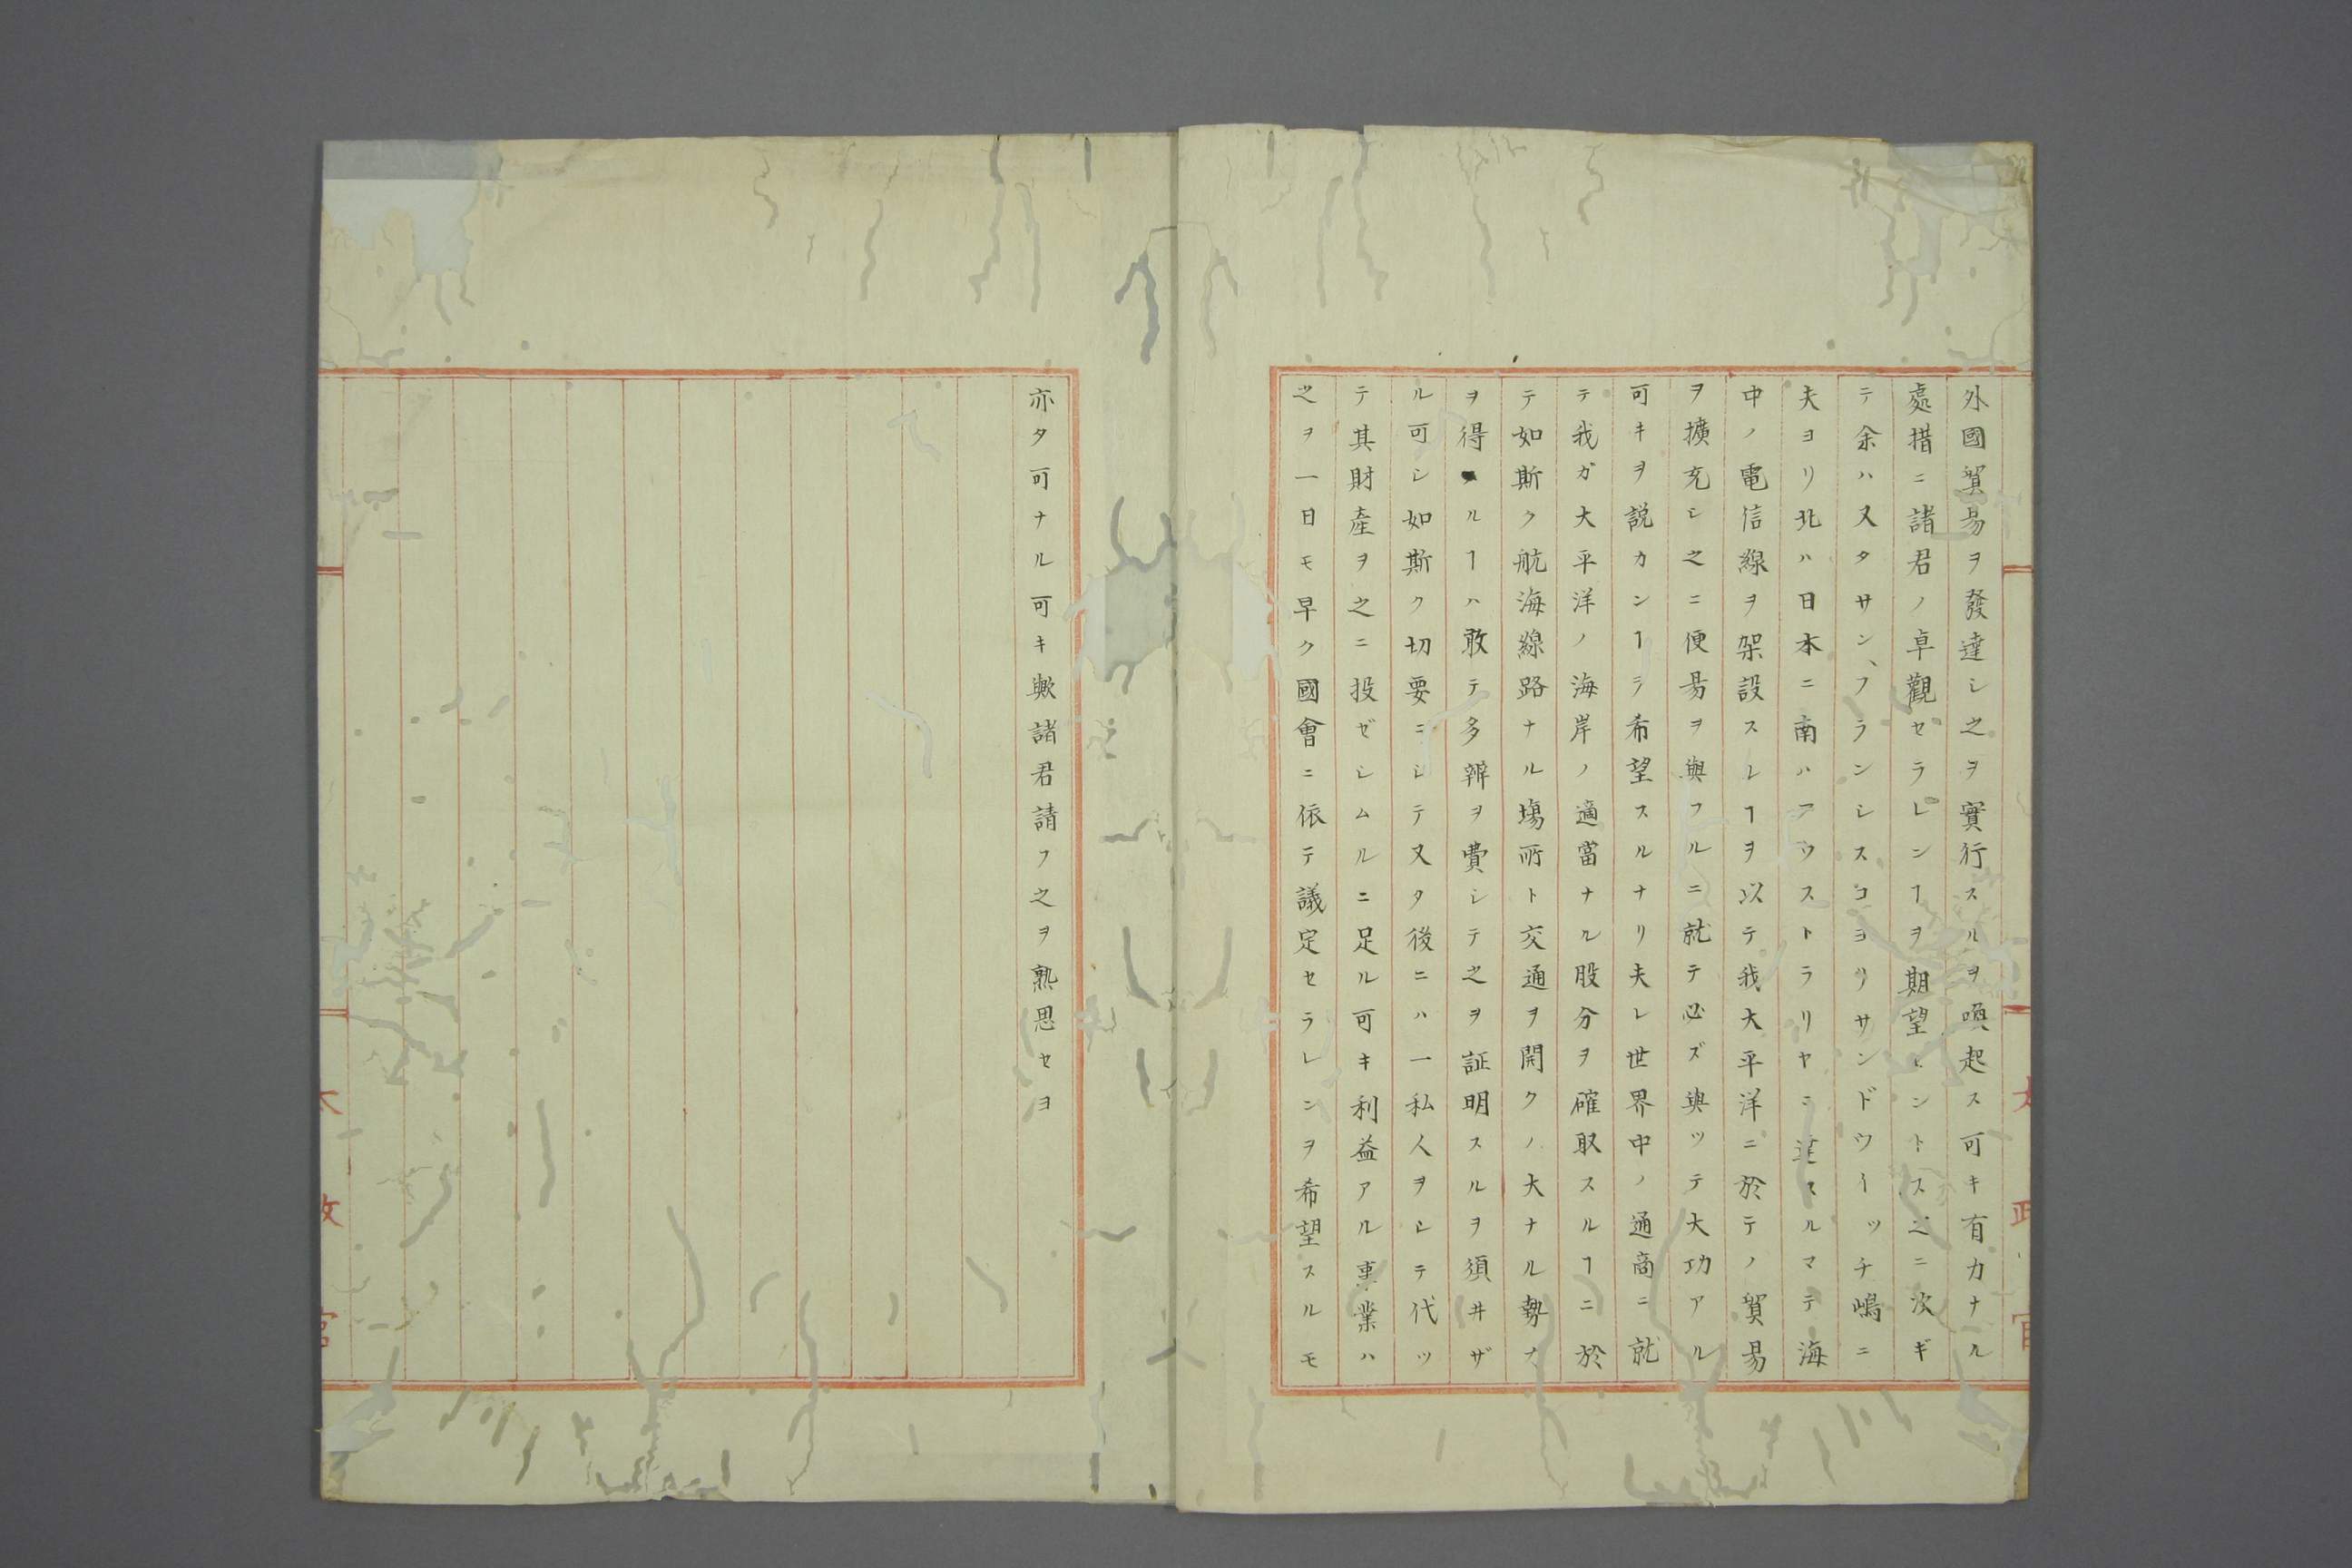 外國貿易ヲ發達シ之ヲ實行スルヲ喚起ス可キ有力ナル
處措ニ諸君ノ卓觀セラレンヿヲ期望セントス之ニ次ギ
テ余ハ又タサン、フランシスコヨリサンドウーッチ嶋ニ
夫ヨリ北ハ日本ニ南ハアウストラリヤニ達スルマテ海
中ノ電信線ヲ架設スレヿヲ以テ我大平洋ニ於テノ貿易
ヲ擴充シ之ニ便易ヲ與フルニ就テ必ズ與ツテ大功アル
可キヲ説カンヿヲ希望スルナリ夫レ世界中ノ通商ニ就
テ我ガ大平洋ノ海岸ノ適當ナル股分ヲ確取スルヿニ於
テ如斯ク航海線路ナル塲所ト交通ヲ開クノ大ナル勢力
ヲ得ルヿハ敢テ多辨ヲ費シテ之ヲ証明スルヲ須井ザ
ル可シ如斯ク切要ニシテ又タ後ニハ一私人ヲシテ代ッ
テ其財產ヲ之ニ投ゼシムルニ足ル可キ利益アル事業ハ
之ヲ一日モ早ク國會ニ依テ議定セラレンヲ希望スルモ
亦タ可ナル可キ歟諸君請フ之ヲ熟思セヨ
太政官